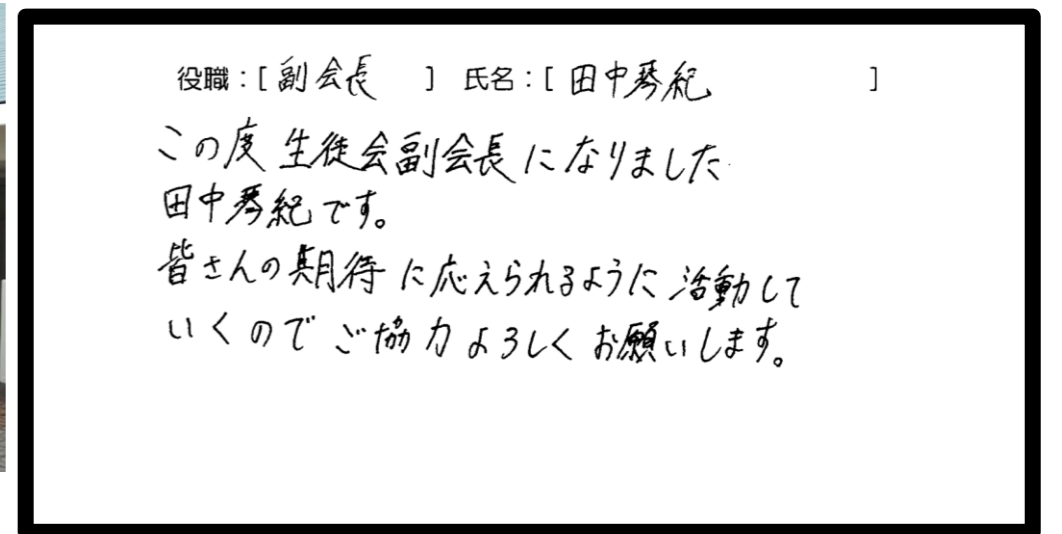 役職：[ 副会長 ] 氏名：[ 田中琴紀 ]
この度 生徒会副会長になりました
田中琴紀です。
皆さんの期待に応えられるように活動して
いくのでご協力よろしくお願いします。